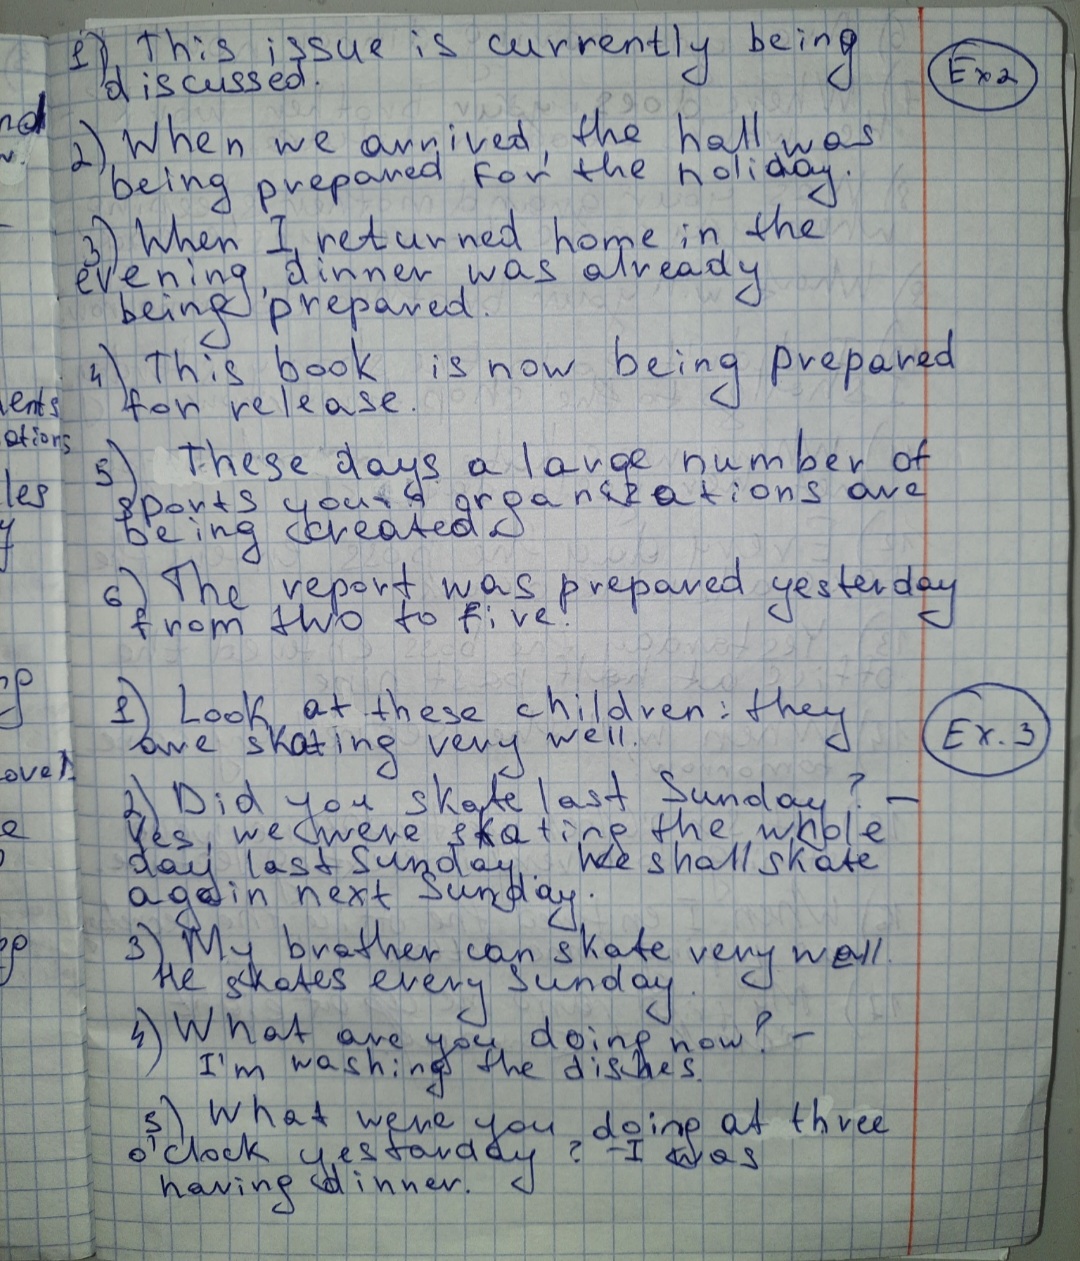 1) This issue is currently being
discussed.
Ex2
2) When we arrived, the hall was
being prepared for the holiday.
3) When I returned home in the
evening, dinner was already
being prepared.
4) This book is now being prepared
for release.
5) These days a large number of
sports organizations are
being created
6) The report was prepared yesterday
from two to five.
1) Look at these children: they
are skating very well.
Ex. 3
2) Did you skate last Sunday? –
Yes, we were skating the whole
day last Sunday. We shall skate
again next Sunday.
3) My brather can skate very well.
He skates every Sunday.
4) What are you doing now? –
I'm washing the dishes.
5) What were you doing at three
o'clock yestarday? – I was
having dinner.
nd
w.
ents
ations
les
y
up
over
e
up